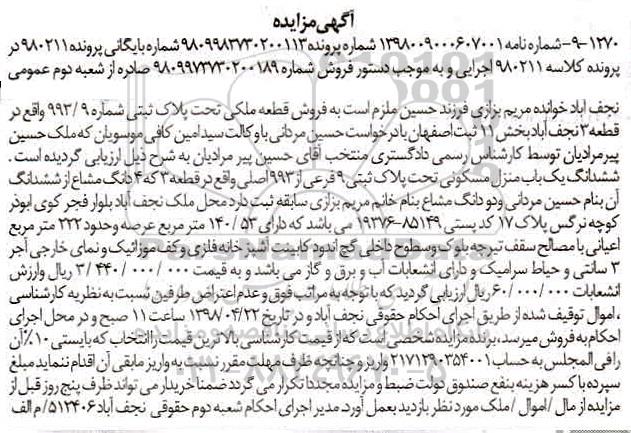 آگهی مزایده
۹-۱۲۷۰- شماره نامه ۱۳۹۸۰۰۹۰۰۰۶۰۷۰۰۱ شماره پرونده ۹۸۰۹۹۸۳۷۳۰۲۰۰۱۱۳ شماره بایگانی پرونده ۹۸۰۲۱۱ در
پرونده کلاسه ۹۸۰۲۱۱ اجرایی و به موجب دستور فروش شماره ۹۸۰۹۹۷۳۷۳۰۲۰۰۱۸۹ صادره از شعبه دوم عمومی
نجف اباد خوانده مریم بزازی فرزند حسین ملزم است به فروش قطعه ملکی تحت پلاک ثبتی شماره ۹۹۳/۹ واقع در
قطعه ۳ نجف آباد بخش ۱۱ ثبت اصفهان با درخواست حسین مردانی با وکالت سید امین کافی موسویان که ملک حسین
پیرمرادیان توسط کارشناس رسمی دادگستری منتخب آقای حسین پیر مرادیان به شرح ذیل ارزیابی گردیده است.
ششدانگ یک باب منزل مسکونی تحت پلاک ثبتی ۹ فرعی از ۹۹۳ اصلی واقع در قطعه ۳ که ۴ دانگ مشاع از ششدانگ
آن بنام حسین مردانی و دو دانگ مشاع بنام خانم مریم بزازی سابقه ثبت دارد محل ملک نجف آباد بلوار فجر کوی ابوذر
کوچه نرگس پلاک ۱۷ کد پستی ۸۵۱۴۹-۱۹۳۷۶ می باشد که دارای ۱۴۰/۵۳ متر مربع عرصه وحدود ۲۲۲ متر مربع
اعیانی با مصالح سقف تیرچه بلوک و سطوح داخلی گچ اندود کابینت آشپز خانه فلزی و کف موزائیک و نمای خارجی آجر
۳ سانتی و حیاط سرامیک و دارای انشعابات آب و برق و گاز می باشد و به قیمت ۳/۴۴۰/۰۰۰/۰۰۰ ریال وارزش
انشعابات ۶۰/۰۰۰/۰۰۰ ریال ارزیابی گردید که با توجه به مراتب فوق و عدم اعتراض طرفین نسبت به نظریه کارشناسی
، اموال توقیف شده از طریق اجرای احکام حقوقی نجف آباد و در تاریخ ۱۳۹۸/۰۴/۲۲ ساعت ۱۱ صبح و در محل اجرای
احکام به فروش میرسد، برنده مزایده شخصی است که از قیمت کارشناسی بالا ترین قیمت را انتخاب که بایستی ۱۰٪ آن
را فی المجلس به حساب ۲۱۷۱۳۹۰۳۵۴۰۰۱ واریز و چنانچه ظرف مهلت مقرر نسبت به واریز مابقی آن اقدام ننماید مبلغ
سپرده با کسر هزینه بنفع صندوق دولت ضبط و مزایده مجددا تکرار می گردد ضمنا خریدار می تواند ظرف پنج روز قبل از
مزایده از مال /اموال /ملک مورد نظر بازدید بعمل آورد. مدیر اجرای احکام شعبه دوم حقوقی نجف آباد ۵۱۲۴۰۶/م الف